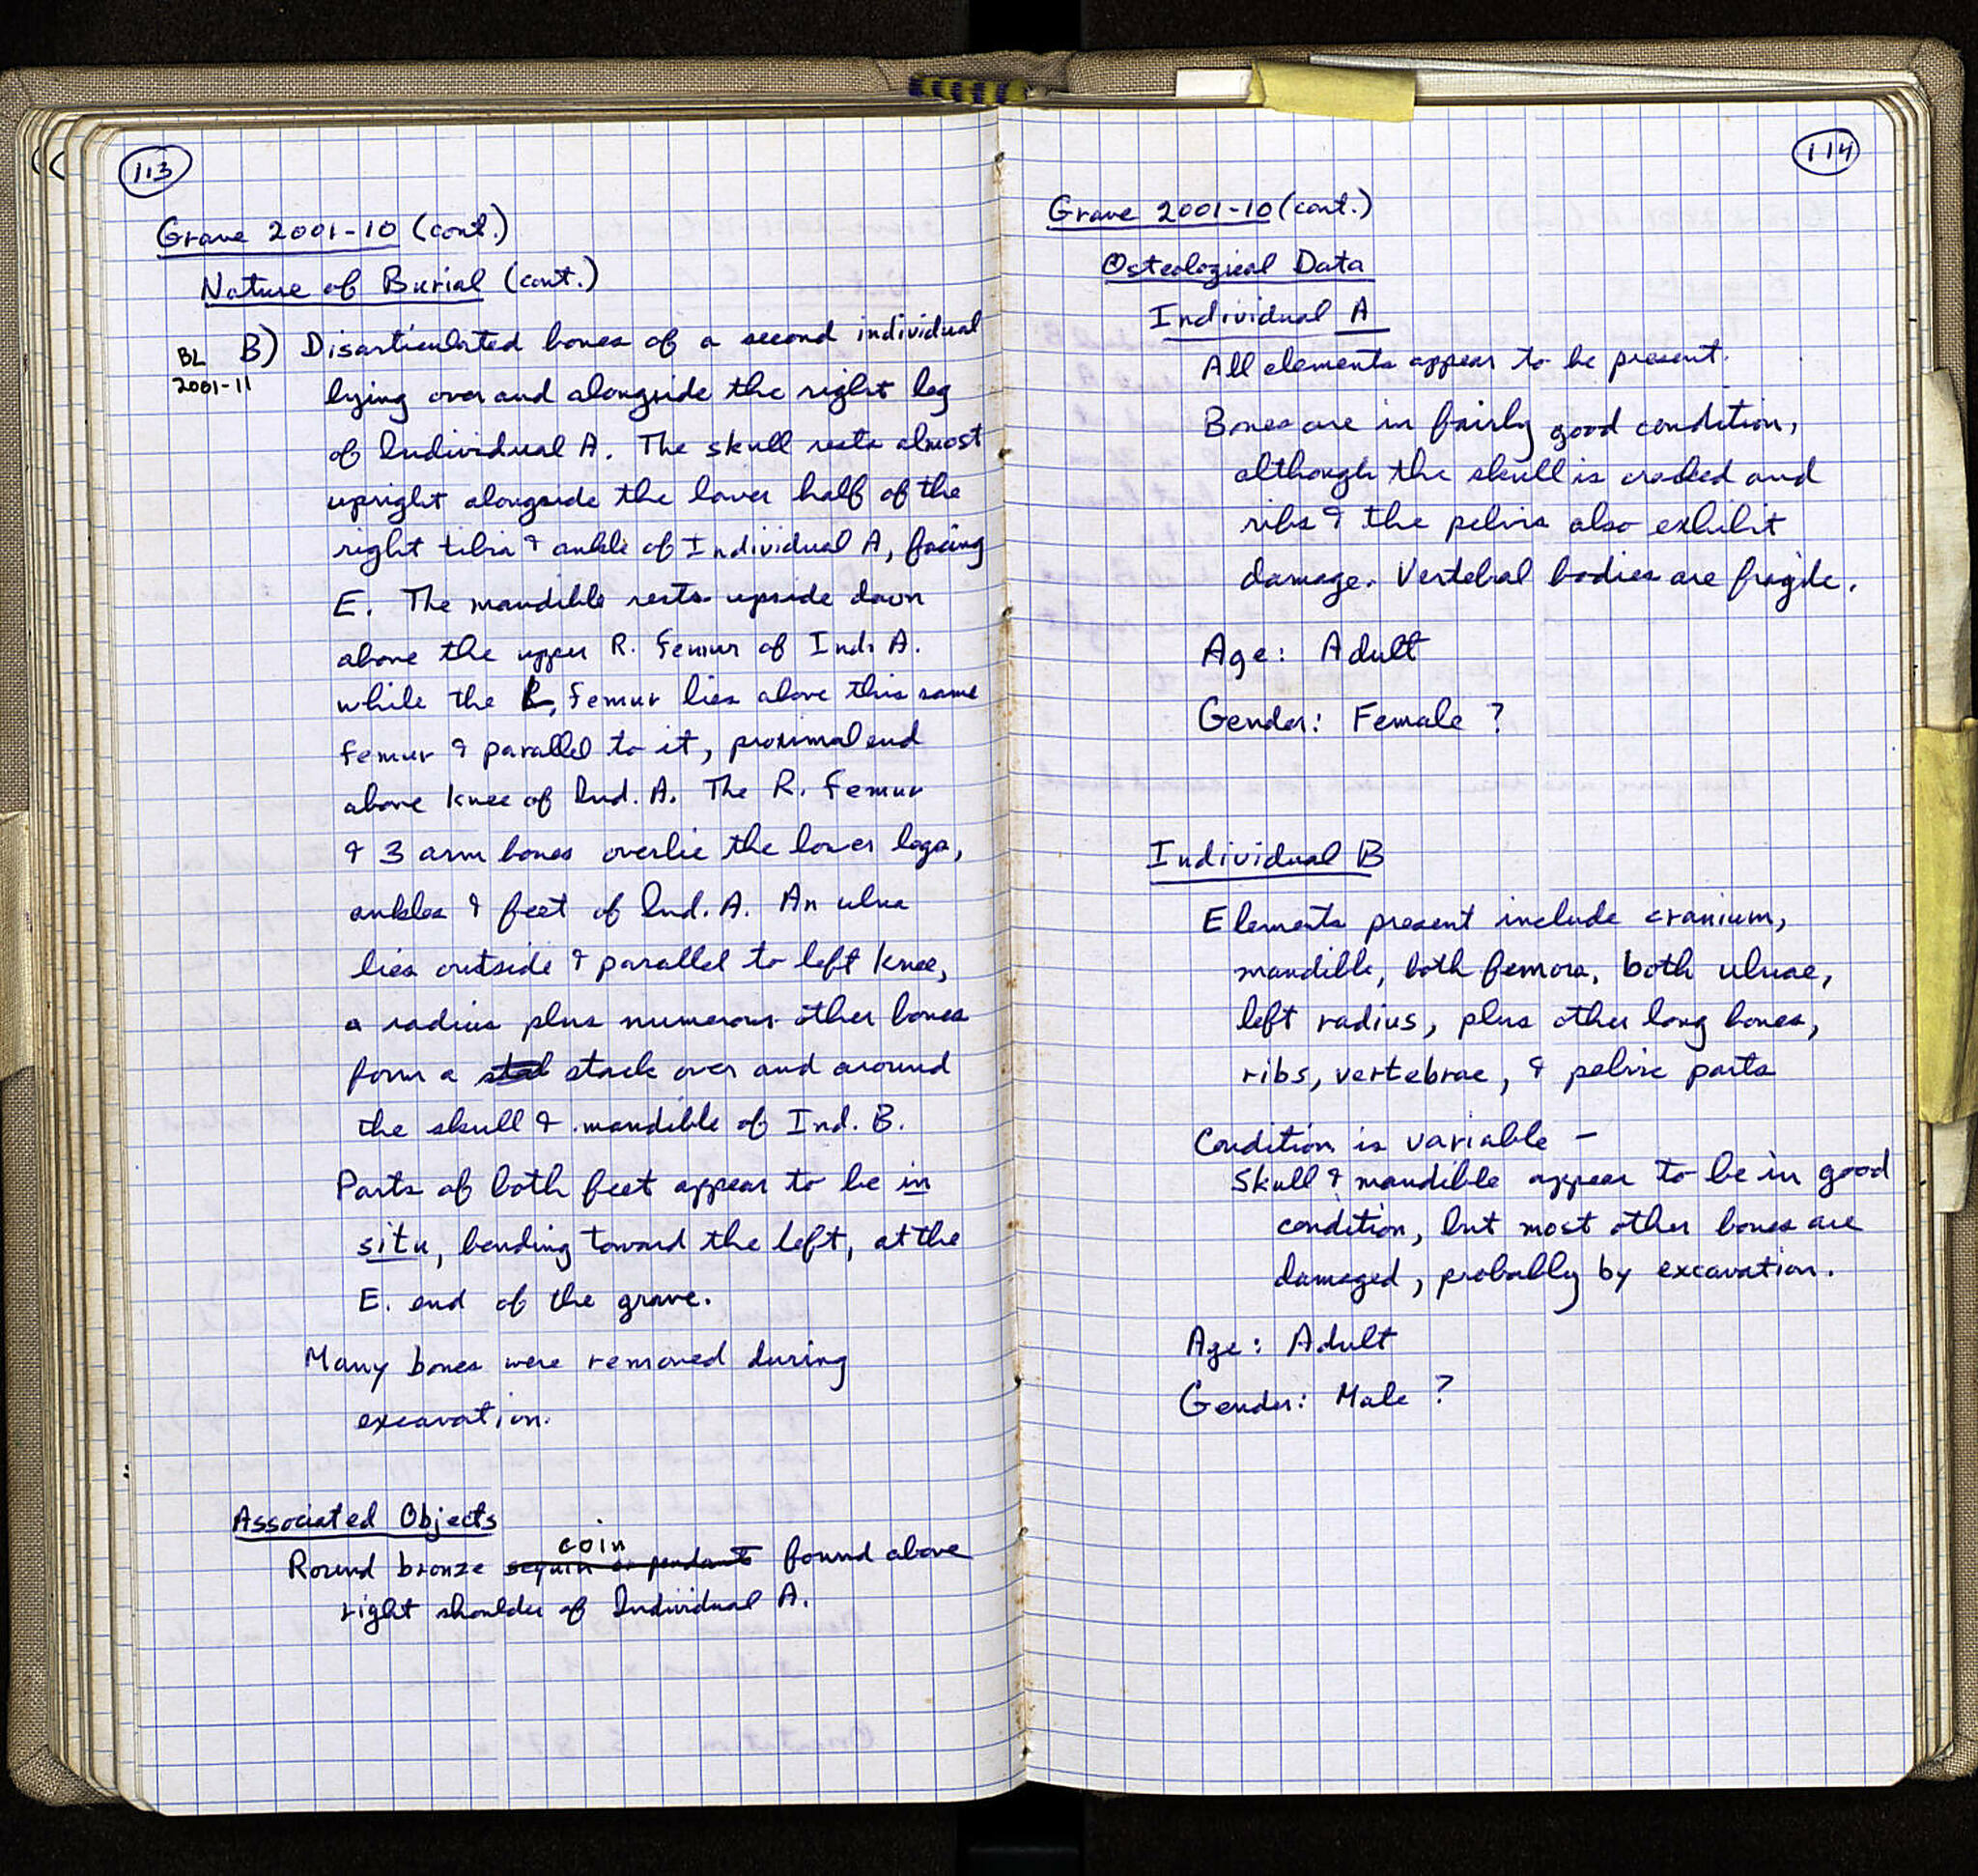 113
Grave 2001-10 (cont.)
Nature of Burial (cont.)
BL
2001-11
B) Disarticulated bones of a second individual
lying over and alongside the right leg
of Individual A. The skull rests almost
upright alongside the lower half of the
right tibia & ankle of Individual A, facing
E. The mandible rests upside down
above the upper R. Femur of Ind. A.
while the L. Femur lies above this same
femur & parallel to it, proximal end
above knee of Ind. A. The R. Femur
& 3 arm bones overlie the lower legs,
ankles & feet of Ind. A. An ulna
lies outside & parallel to left knee,
a radius plus numerous other bones
form a stack over and around
the skull & mandible of Ind. B.
Parts of both feet appear to be in
situ, bending toward the left, at the
E. end of the grave.
Many bones were removed during
excavation.
Associated Objects
coin
Round bronze sequin or pendant found above
right shoulder of Individual A.
114
Grave 2001-10 (cont.)
Osteological Data
Individual A
All elements appear to be present.
Bones are in fairly good condition,
although the skull is cracked and
ribs & the pelvis also exhibit
damage. Vertebral bodies are fragile.
Age: Adult
Gender: Female ?
Individual B
Elements present include cranium,
mandible, both femora, both ulnae,
left radius, plus other long bones,
ribs, vertebrae, & pelvic parts
Condition is variable -
Skull & mandible appear to be in good
condition, but most other bones are
damaged, probably by excavation.
Age: Adult
Gender: Male ?